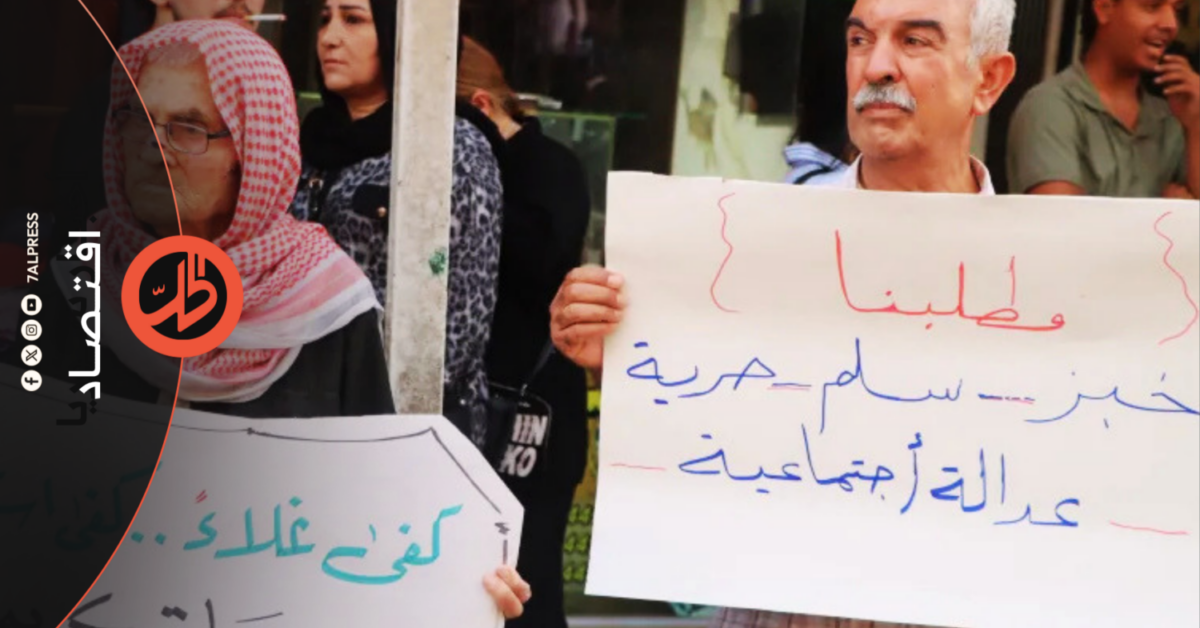 مطلبنا
خبز - سلم - حرية
عدالة أجتماعية
كفىٰ غلاءً..كفىٰ
اقتصاد
7ALPRESS